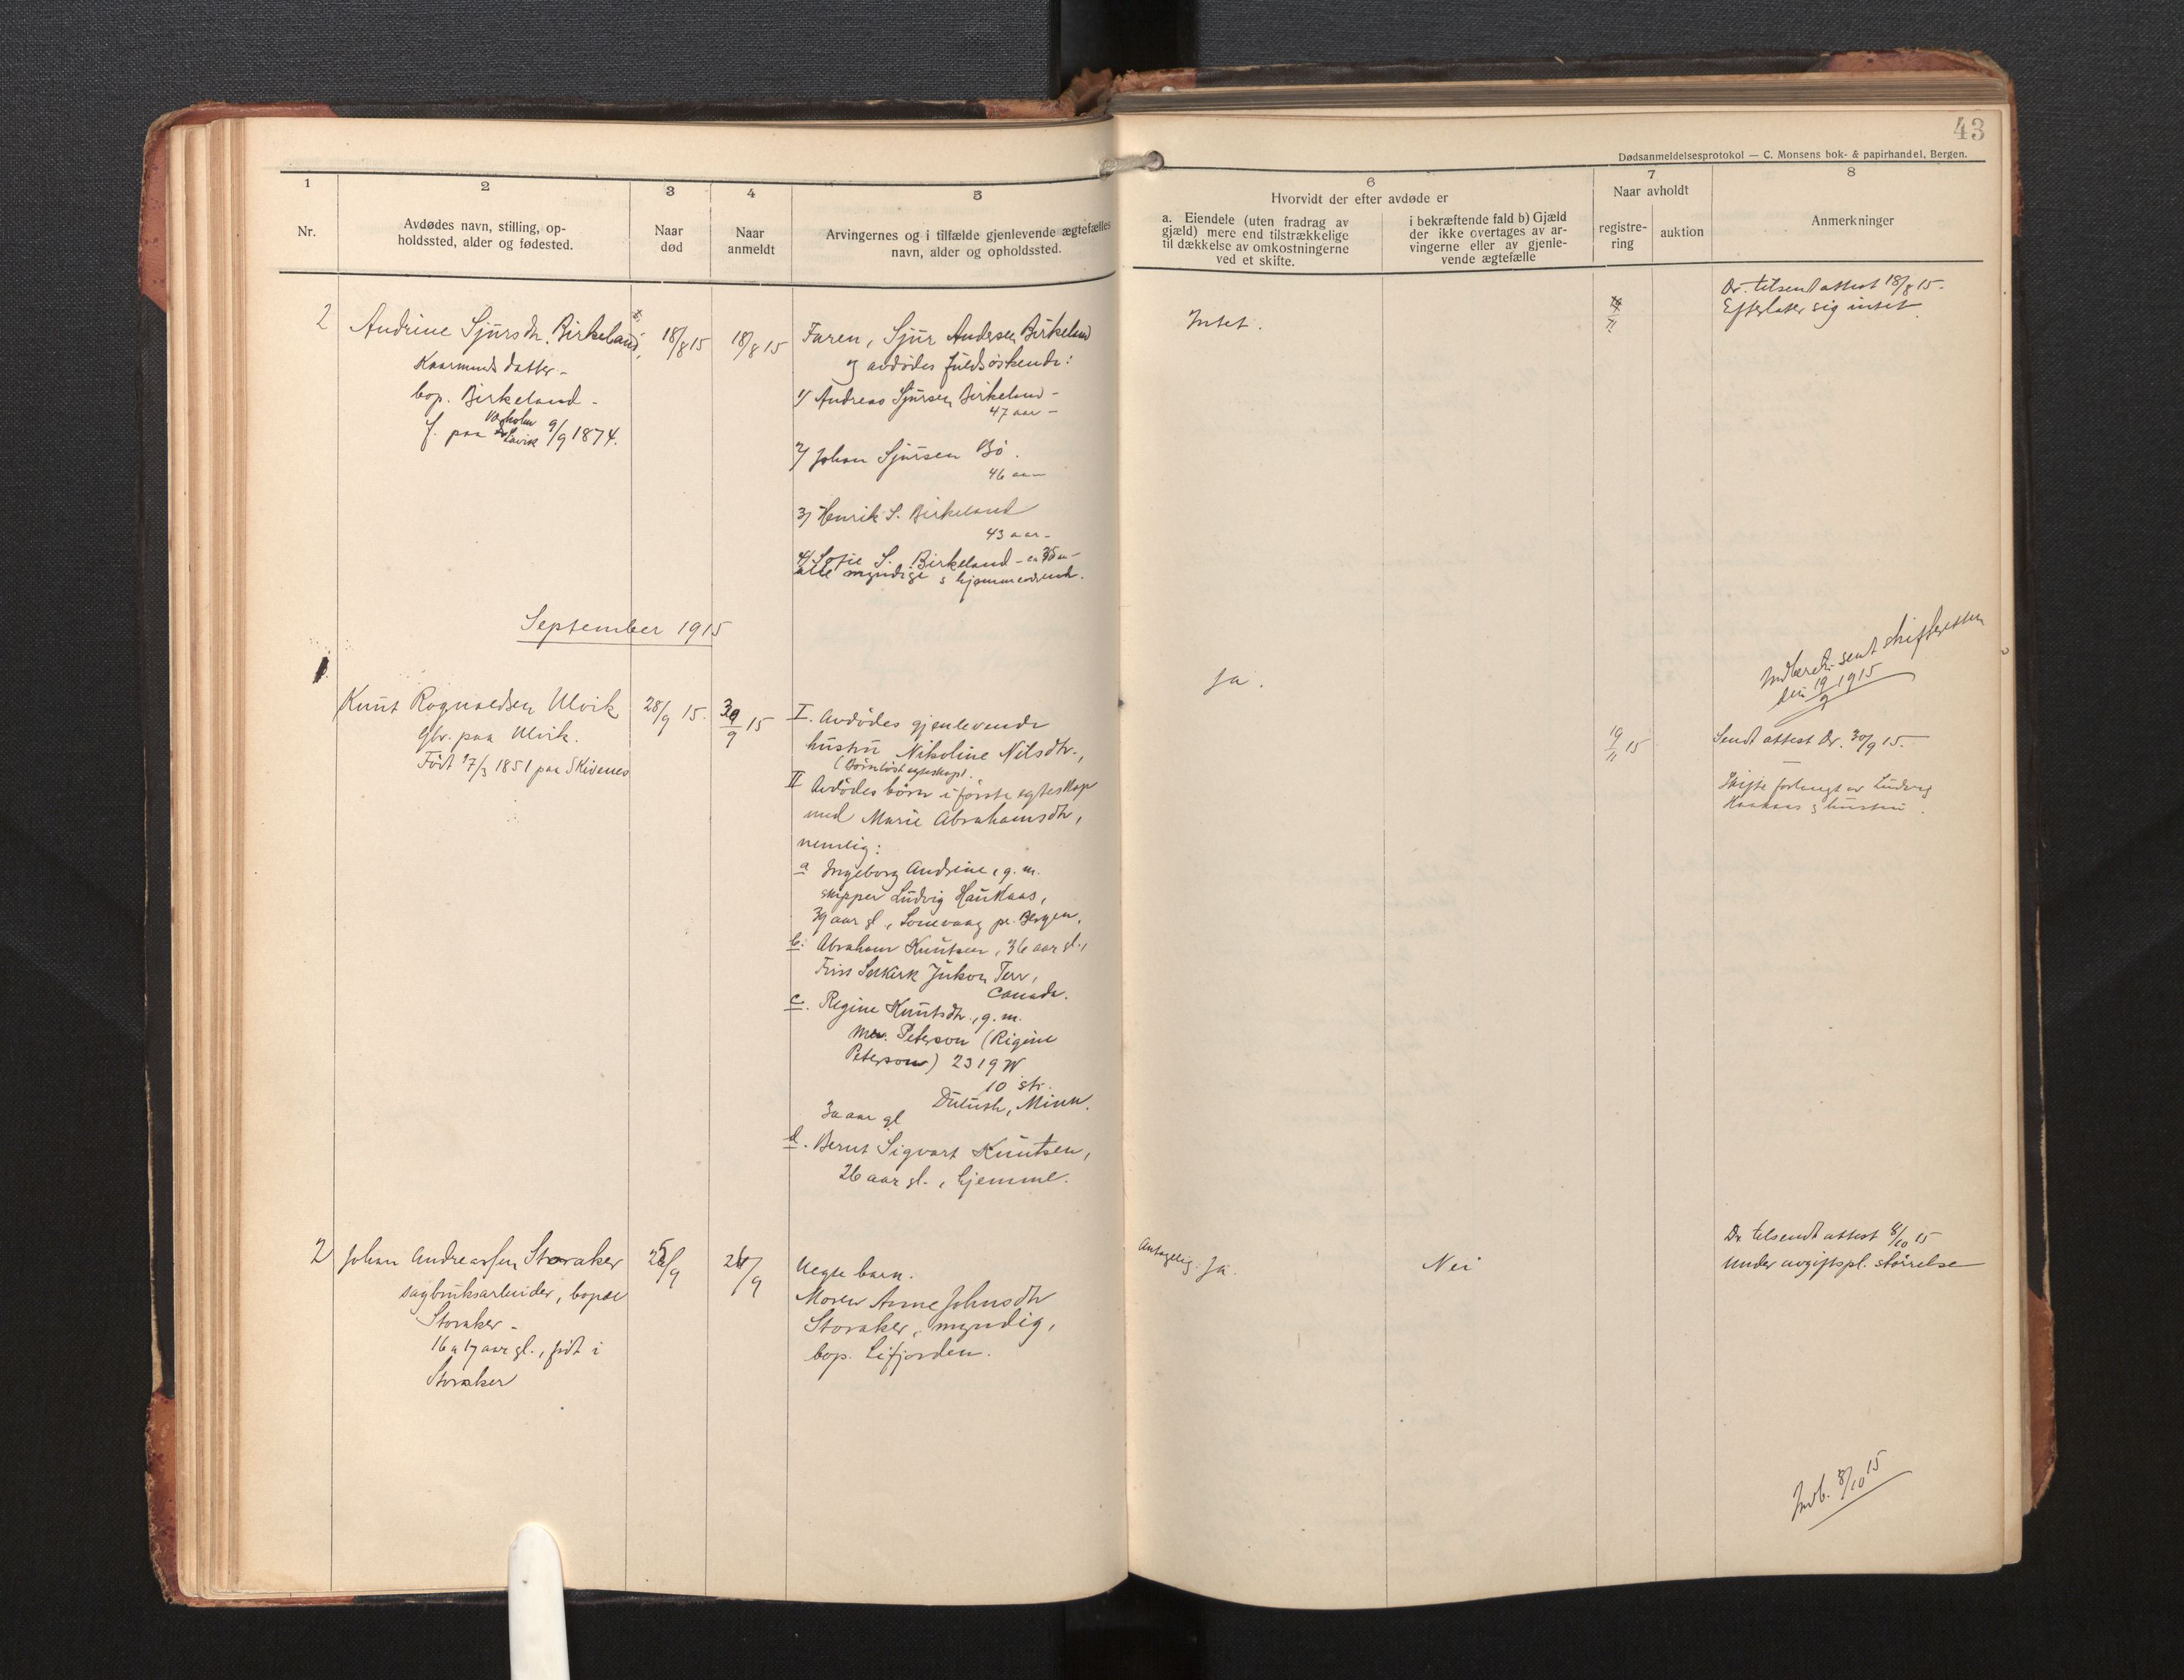 43
Dødsanmeldelsesprotokol — C. Monsens bok- & papirhandel, Bergen.
1
2
3
4
5
6
7
8
Nr.
Avdødes navn, stilling, op-
holdssted, alder og fødested.
Naar
død
Naar
anmeldt
Arvingernes og i tilfælde gjenlevende ægtefælles
navn, alder og opholdssted.
Hvorvidt der efter avdøde er
a. Eiendele (uten fradrag av
gjæld) mere end tilstrækkelige
til dækkelse av omkostningerne
ved et skifte.
i bekræftende fald b) Gjæld
der ikke overtages av ar-
vingerne eller av gjenle-
vende ægtefælle
Naar avholdt
registre-
ring
auktion
Anmerkninger
2
Andrine Sjursdtr. Birkeland,
Kaarmands datter -
bop. Birkeland -
f. paa Lavik 9/9 1874.
18/8 15
18/8 15
Faren, Sjur Andersen Birkeland
og avdødes fuldsøskende:
1/ Andreas Sjursen Birkeland -
47 aar -
2/ Johan Sjursen Bø.
46 aar
3/ Henrik S. Birkeland
43 aar -
4/ Sofie S. Birkeland -
alle myndige & hjemmeværende.
Intet.
Dr. tilsendt attest 18/8 15.
Efterlater sig intet
September 1915
1
Knut Rognaldsen Ulvik
gbr. paa Ulvik.
Født 17/3 1851 paa Skivenes
28/9 15.
30/9 15
I. Avdødes gjenlevende
hustru Nikoline Nilsdtr.,
(Barnløst egteskap).
II Avdødes børn i første egteskap
med Marie Abrahamsdtr,
nemlig:
a Ingeborg Andrine, g. m.
skipper Ludvig Haukaas,
39 aar gl., Sonevaag pr. Bergen.
b: Abraham Knutsen, 36 aar gl.,
Selkirk Jukon Terr,
Canada.
c. Regine Knutsdtr., g. m.
Mr. Peterson (Rigine
Peterson) 2319 W
10 str.
Duluth, Minn.
30 aar gl
d. Bernt Sigvart Knutsen,
26 aar gl., hjemme.
Ja.
19/11 15
Indberetn. sendt skifteretten
den 19/9 1915
Sendt attest Dr. 30/9 15.
Skifte forlangt av Ludvig
Haukaas & hustru.
2
Johan Andreassen Storaker
sagbruksarbeider, bopæl
Storaker -
16 a 17 aar gl., født i
Storaker
25/9
26/9
Uegte barn.
Moren Anne Johnsdtr
Storaker, myndig,
bop. Lifjorden.
Antagelig: Ja.
Nei
Dr tilsendt attest 8/10 15
Under avgiftspl. størrelse
Indb. 8/10 15